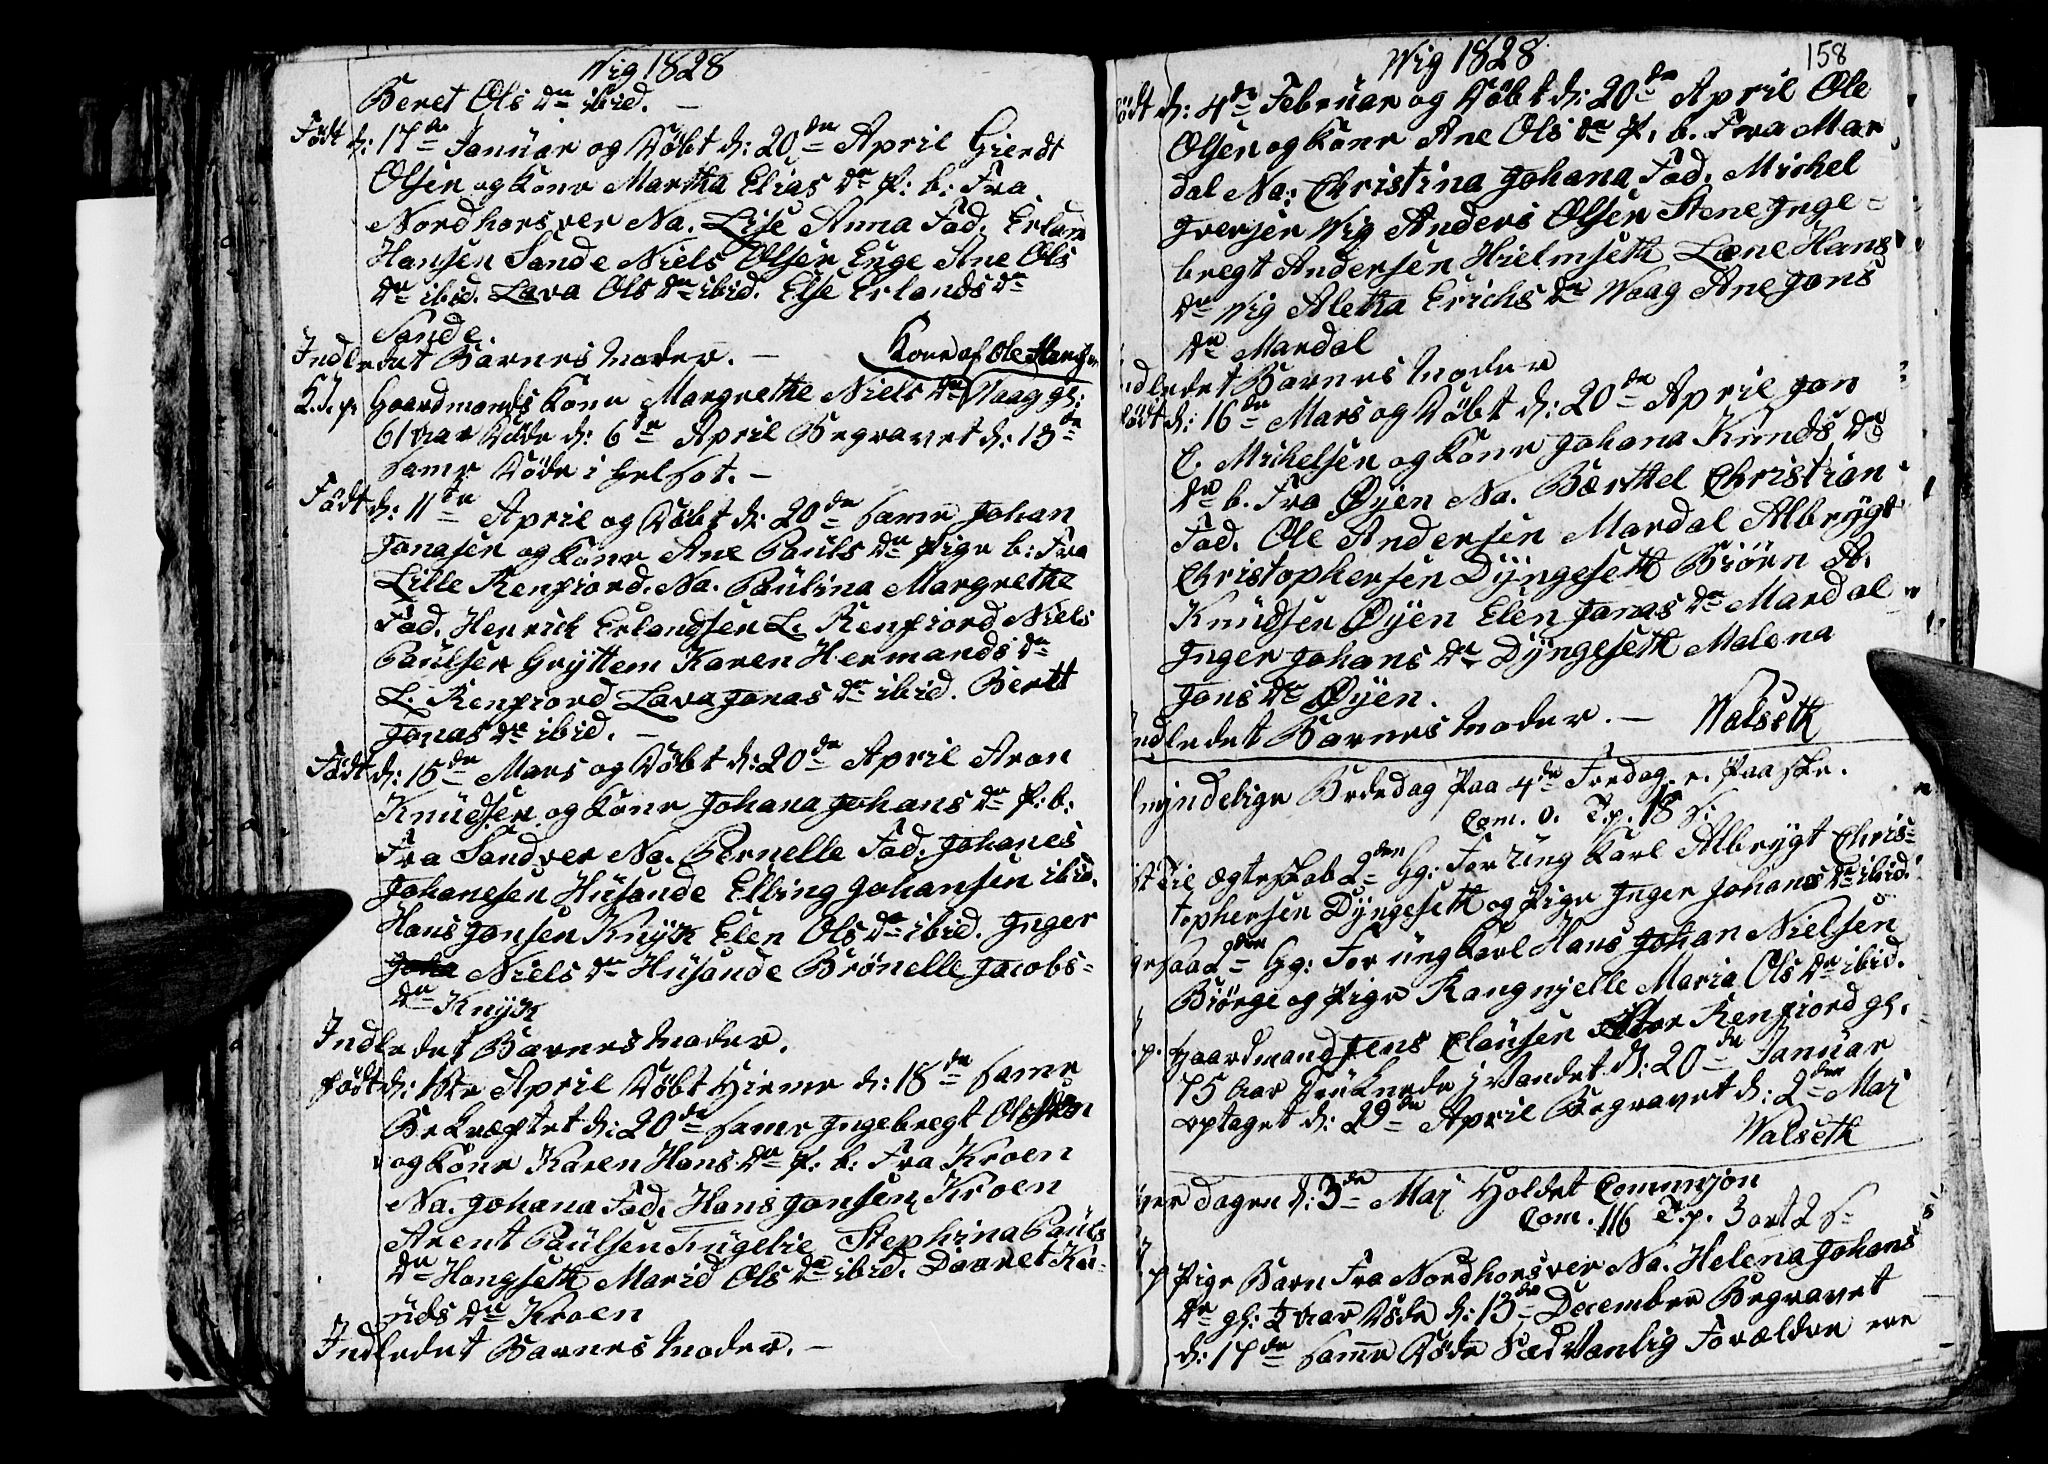 Wig 1828
Beret Ols dr ibid. –
Født d: 17de Januar og Døbt d: 20de April Gierdt
Olsen og Kone Martha Elias dr P: b: Fra
Nordhorsver Na. Lise Anna Fad. Erlan
Hansen Sande Niels Olsen Enge Ane Ols
dr ibid. Lava Ols dr ibid. Else Erlands dr
Sande.
Indledet Barnes Moder. –
Kone af Ole Hansen
K. J. p. Gaardmands Kone Margrethe Niels dr Waag gl:
61 aar Døde d: 6te April Begravet d: 13de
Same Døde i Helsot. –
Født d: 11te April og Døbt d: 20de Same Johan
Jonasen og Kone Ane Pauls dr Pige b: Fra
Lille Renfiord. Na. Paulina Margretha
Fad. Henrich Erlandsen L. Renfiord Niels
Paulsen Gryttem Karen Hermands dr
L. Renfiord Lava Jonas dr ibid. Berit
Jonas dr ibid. –
Født d: 15de Mars og Døbt d: 20de April Aron
Knudsen og Kone Johana Johans dr P: b:
Fra Sandver Na. Pernelle Fad. Johanes
Johanesen Husande Elbing Johansen ibid.
Hans Jonsen Knyk Elen Ols dr ibid. Inger
Niels dr Husande Brønelle Jacobs-
dr Knyk
Indledet Barnes Moder.
Født d: 1ste April Døbt Hieme d: 18de Same
Bekræftet d: 20de Same Ingebregt Olsen
og Kone Karen Hans dr P: b: Fra Kroen
Na. Johana Fad. Hans Jonsen Kroen
Arent Paulsen Fugelie Stephina Pauls
dr Hongseth Marid Ols dr ibid. Daaret Kn-
uds dr Kroen
Indledet Barnes Moder. –
Wig 1828
158
Født d: 4de Februar og Døbt d: 20de April Ole
Olsen og Kone Ane Ols dr P. b. Fra Mar
dal Na: Christina Johana Fad. Michel
Iversen Wig Anders Olsen Stene Inge-
bregt Andersen Hielmseth Læne Hans
dr Wig Aletha Erichs dr Waag Ane Jons
dr Mardal
Indledet Barnes Moder
Født d: 16de Mars og Døbt d: 20de April Jon
C. Michelsen og Kone Johana Knuds dr
b. Fra Øyen Na. Bærthel Christian
Fad. Ole Andersen Mardal Albrygt
Christophersen Dyngeseth Biørn A.
Knudsen Øyen Elen Jonas dr Mardal
Inger Johans dr Dyngeseth Malena
Jons dr Øyen.
Indledet Barnes Moder. – Walseth
Bededag Paa 4de Fredag e. Paaske.
Com. 0. T.p. 18 s.
Til Ægteskab 2den Gg: For ung Karl Albrygt Chris-
tophersen Dyngeseth og Pige Inger Johans dr ibid.
2den Gg: For ung Karl Hans Johan Nielsen
Biørge og Pige Rangnjelle Maria Ols dr ibid.
p. Gaardmand Jens Clausen Stor Renfiord gl.
75 Aar Druknede i Vandet d: 20de Januar
optaget d: 29de April Begravet d: 2den Maj
Walseth
dagen d: 3de Maj Holdet Commujon
Com. 116 T.p. 3 ort 2 s
p Pige Barn Fra Nordhorsver Na. Helena Johans
dr gl: aar Døde d: 13de December Begravet
d: 17de Same Døde Sædvanlig Forældre ere